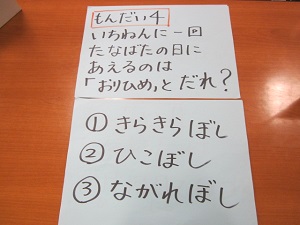 もんだい4
いちねんに一回
たなばたの日に
あえるのは
「おりひめ」と だれ?
① きらきらぼし
② ひこぼし
③ ながれぼし